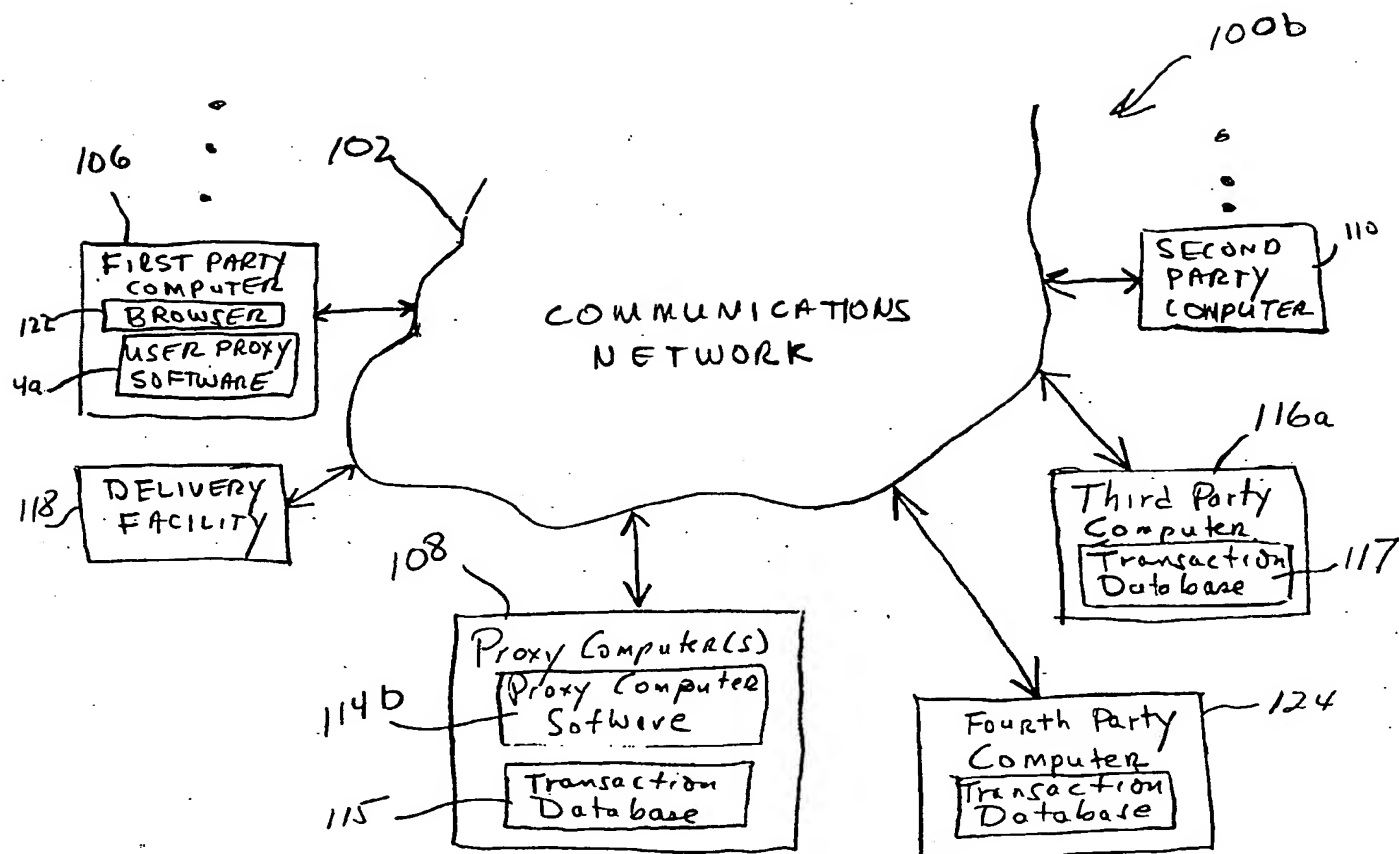 100b
106
102
FIRST PARTY
COMPUTER
122
BROWSER
4a
USER PROXY
SOFTWARE
COMMUNICATIONS
NETWORK
SECOND
PARTY
COMPUTER
110
118
DELIVERY
FACILITY
116a
Third Party
Computer
Transaction
Database
117
108
Proxy Computer(s)
Proxy Computer
Sofware
114b
Transaction
Database
115
Fourth Party
Computer
Transaction
Database
124